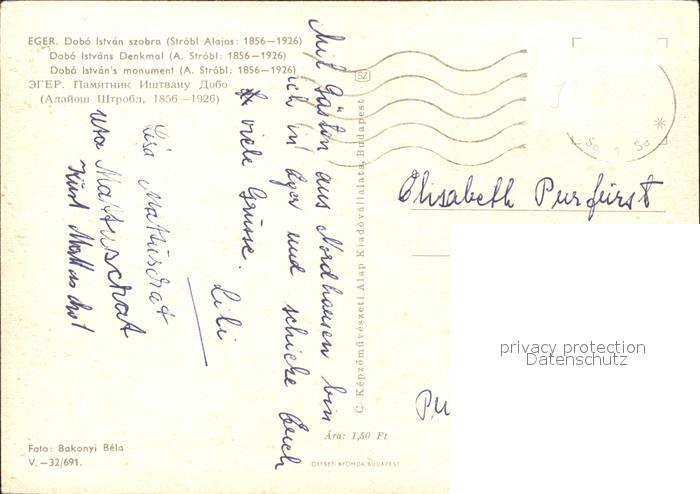 EGER. Dobó István szobra (Stróbl Alajos: 1856—1926)
Dobó Istváns Denkmal (A. Stróbl: 1856—1926)
Dobó István's monument (A. Stróbl: 1856—1926)
ЭГЕР. Памятник Иштвану Добо
(Алайош Штробл, 1856—1926)
Mit Gästen aus Nordhausen bin
ich in Eger und schicke Euch
viele Grüsse.
Lili
Lisa Mattuschat
Uta Mattuschat
Kurt Mattuschat
SZ
© Képzőművészeti Alap Kiadóvállalata, Budapest
Elisabeth Purfürst
privacy protection
Datenschutz
Pu
Foto: Bakonyi Béla
V.—32/691.
Ára: 1,50 Ft
OFFSET-NYOMDA, BUDAPEST